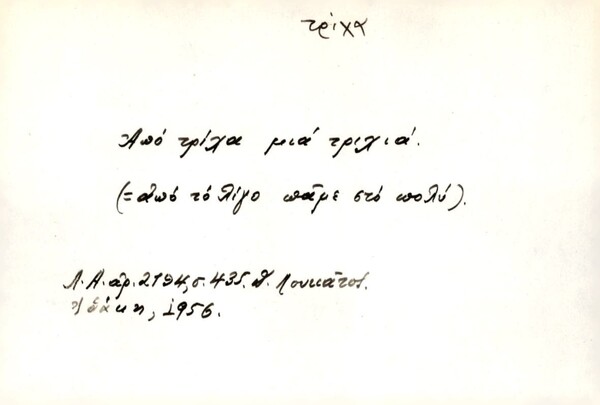 τρίχα
Ἀπό τρίχα μιά τριχιά.
(=ἀπό τό λίγο πᾶμε στό πολύ).
Λ.Α. ἀρ. 2194, σ. 435. Δ. Λουκᾶτος.
Ἰθάκη, 1956.